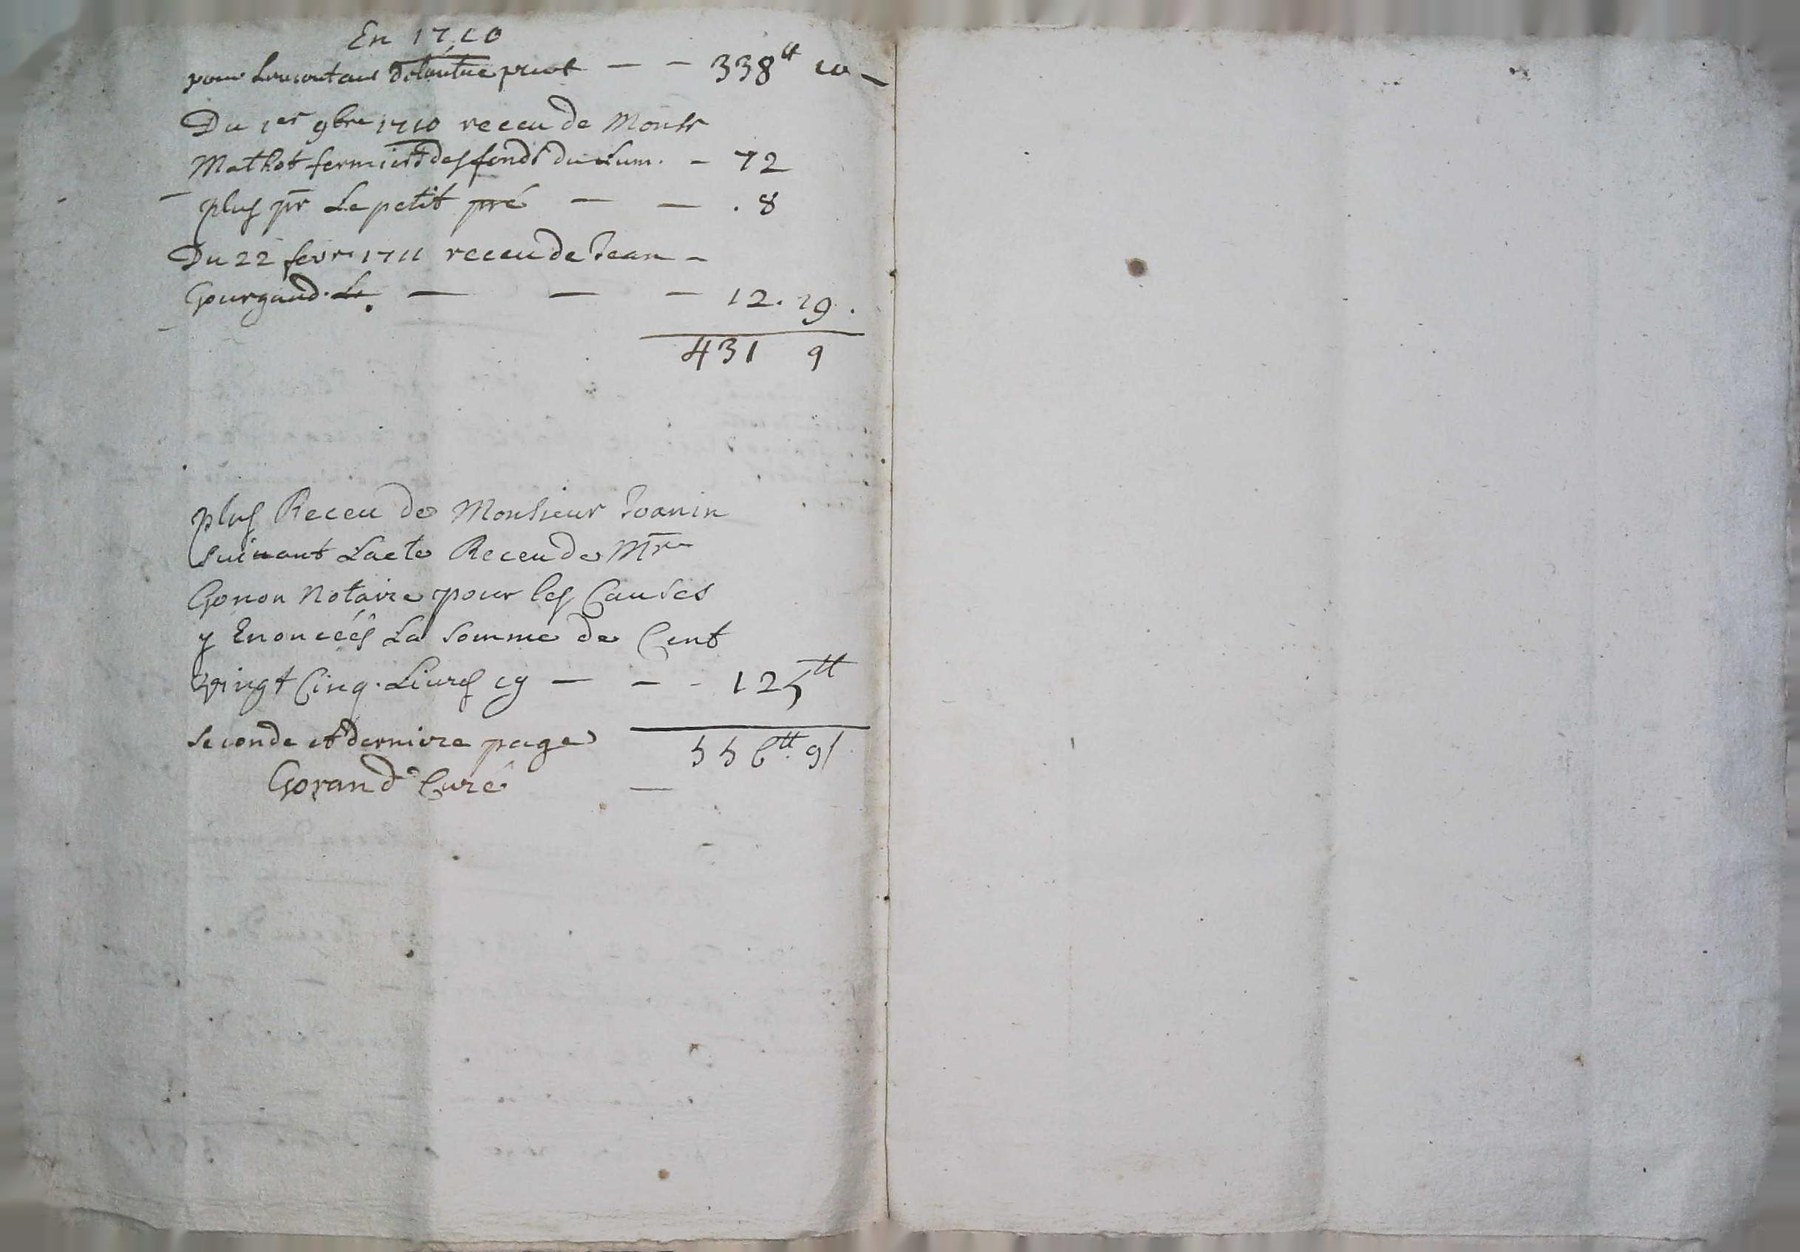 En 1710
pour le montant de lautre part — — 338tt 10 —
Du 1er 9bre 1710 receu de Monsr
Mathot fermier des fonds du Lum. — 72
— plus pr Le petit pré — — . 8
Du 22 fevr 1711 receu de Jean —
Gourgaud. Le — — — 12. 19.
431 9
plus Receu de Monsieur Joanin
suivant Lacte Receu de Mre
Gonon Notaire pour les Causes
y Enoncéés La somme de Cent
vingt Cinq. Livres cy — — - 125tt
seconde et derniere page 556tt. 9s
Gorand Curé —